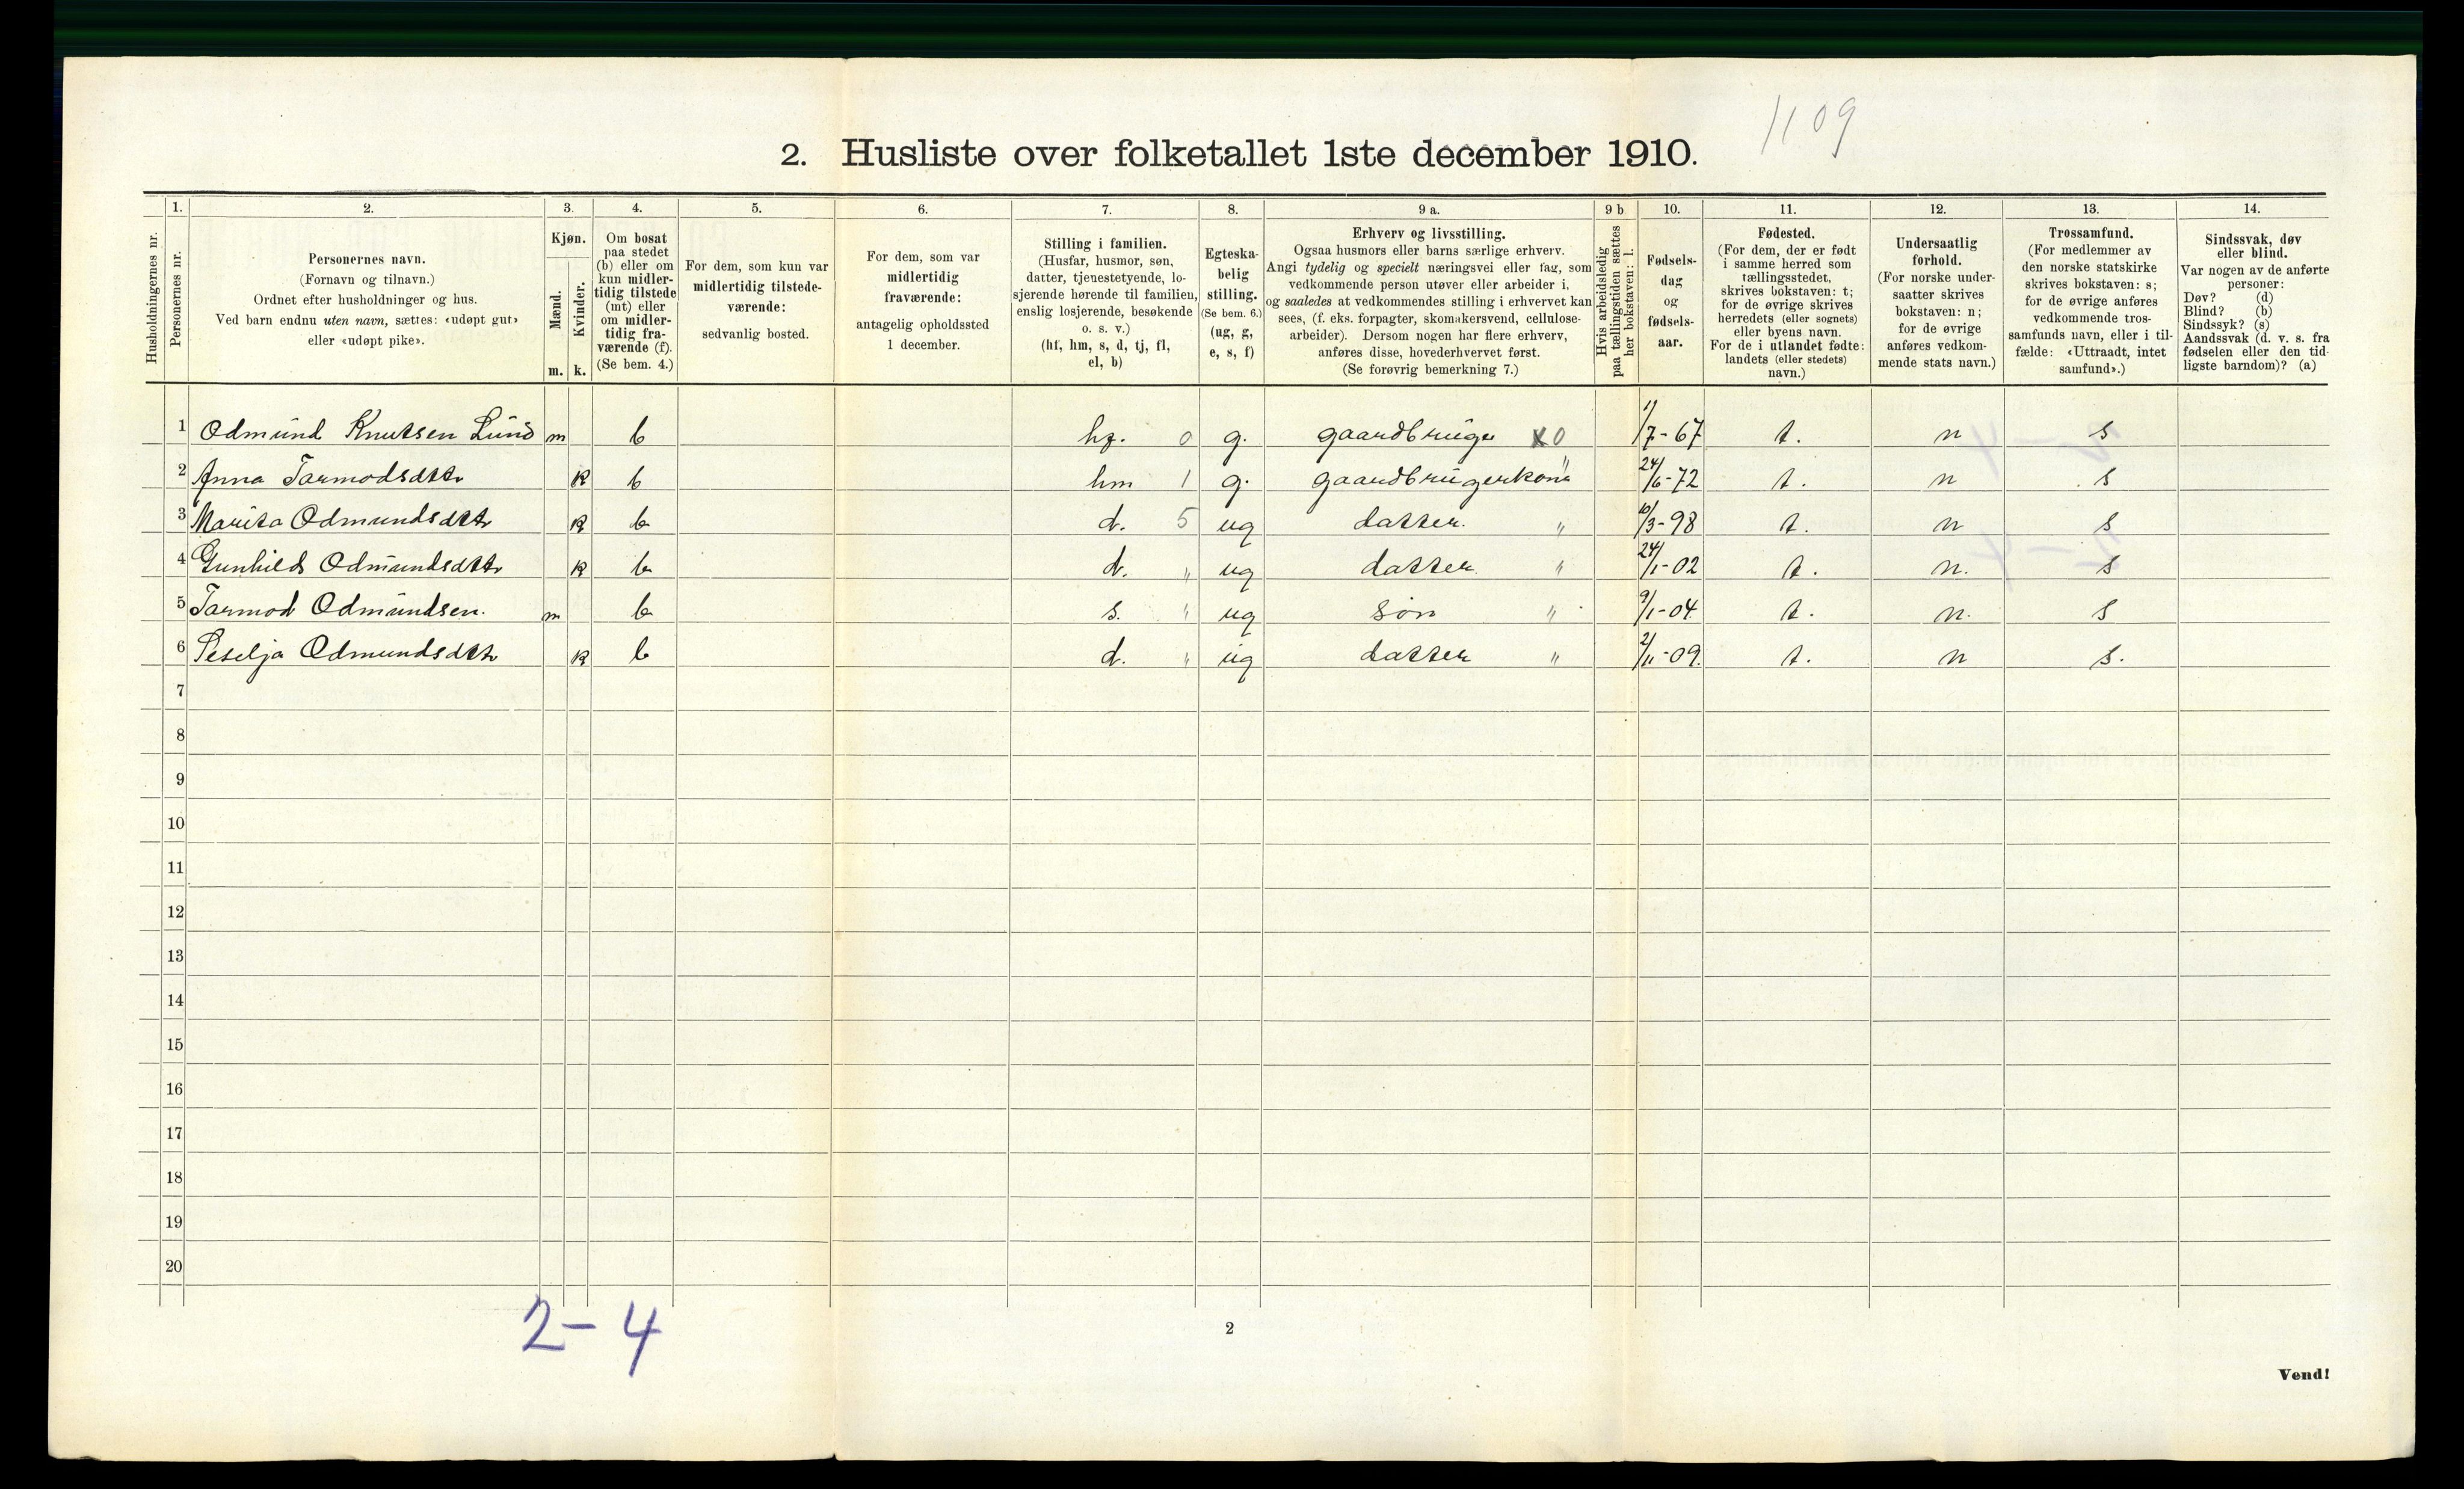 1109
2. Husliste over folketallet 1ste december 1910.
1. 2. 3. 4. 5. 6. 7. 8. 9 a. 9 b 10. 11. 12. 13. 14.
Husholdningernes nr.
Personernes nr.
Personernes navn.
(Fornavn og tilnavn.)
Ordnet efter husholdninger og hus.
Ved barn endnu uten navn, sættes: «udøpt gut»
eller «udøpt pike».
Kjøn.
Mænd.
Kvinder.
m. k.
Om bosat
paa stedet
(b) eller om
kun midler-
tidig tilstede
(mt) eller
om midler-
tidig fra-
værende (f).
(Se bem. 4.)
For dem, som kun var
midlertidig tilstede-
værende:
sedvanlig bosted.
For dem, som var
midlertidig
fraværende:
antagelig opholdssted
1 december.
Stilling i familien.
(Husfar, husmor, søn,
datter, tjenestetyende, lo-
sjerende hørende til familien,
enslig losjerende, besøkende
o. s. v.)
(hf, hm, s, d, tj, fl,
el, b)
Egteska-
belig
stilling.
(Se bem. 6.)
(ug, g,
e, s, f)
Erhverv og livsstilling.
Ogsaa husmors eller barns særlige erhverv.
Angi tydelig og specielt næringsvei eller fag, som
vedkommende person utøver eller arbeider i,
og saaledes at vedkommendes stilling i erhvervet kan
sees, (f. eks. forpagter, skomakersvend, cellulose-
arbeider). Dersom nogen har flere erhverv,
anføres disse, hovederhvervet først.
(Se forøvrig bemerkning 7.)
Hvis arbeidsledig
paa tællingstiden sættes
her bokstaven: l.
Fødsels-
dag
og
fødsels-
aar.
Fødested.
(For dem, der er født
i samme herred som
tællingsstedet,
skrives bokstaven: t;
for de øvrige skrives
herredets (eller sognets)
eller byens navn.
For de i utlandet fødte:
landets (eller stedets)
navn.)
Undersaatlig
forhold.
(For norske under-
saatter skrives
bokstaven: n;
for de øvrige
anføres vedkom-
mende stats navn.)
Trossamfund.
(For medlemmer av
den norske statskirke
skrives bokstaven: s;
for de øvrige anføres
vedkommende tros-
samfunds navn, eller i til-
fælde: «Uttraadt, intet
samfund».)
Sindssvak, døv
eller blind.
Var nogen av de anførte
personer:
Døv? (d)
Blind? (b)
Sindssyk? (s)
Aandssvak (d. v. s. fra
fødselen eller den tid-
ligste barndom)? (a)
1 Odmund Knutsen Lund m b hf. 0 g. gaardbruger x0 1/7-67 t. n s
2 Anna Tarmodsdtr k b hm 1 g. gaardbrugerkone " 24/6-72 t. n s
3 Marita Odmundsdtr k b d. 5 ug datter. " 10/3-98 t. n s
4 Gunhild Odmundsdtr k b d. " ug datter " 24/1-02 t. n. s
5 Tarmod Odmundsen. m b s. " ug søn " 9/1-04 t. n. s
6 Seselja Odmundsdtr k b d. " ug datter " 2/11-09. t. n s.
7
8
9
10
11
12
13
14
15
16
17
18
19
20
2-4
2
Vend!